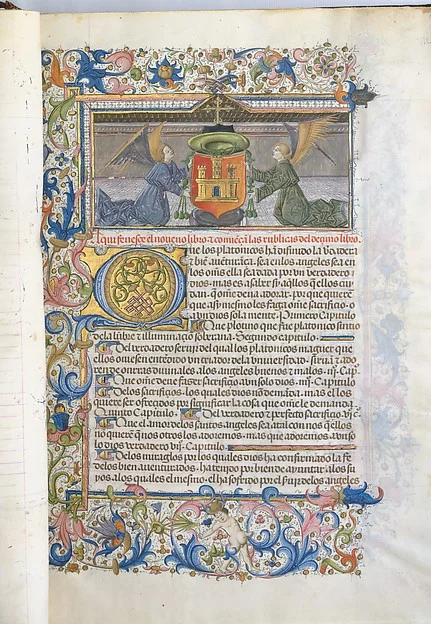 Aqui fenesce el noueno libro ⁊ comiença las rublicas del dezimo libro.
Que los platonicos hã difinido la v̓dadera
bie aventurãça. sea en los angeles sea en
los om̃s ella sea dada por vn verdadero
dios. mas es a saber si aq̃llos q̃ ellos cui
dan. q̃ om̃e deua adorar. por que quierẽ
que assi mesmo les faga om̃e sacrificio. o
a vn dios sola mente. Primero Capitulo
Que plouino que fue platonico sintio
de la lũbre ⁊ illuminaçiõ soberana. Segundo capitulo.
Del verdadero serui del qual los platonicos
ellos ouiessen entẽdido vn criador de la vniuersidad
rende onrras diuinales. a los angeles buenos ⁊ malos. iij. Cap̃.
Que om̃e deue fazer sacrificio a vn solo dios. iiij. Capitulo
De los sacrificios. los quales dios nõ demãda. mas el los
quiere ser ofreçidos por significar la cosa que om̃e le demanda.
Quinto Capitulo. Del verdadero ⁊ perfecto sacrificio. vj. c̃.
Que el amor de los santos angeles sea atal con nos q̃ ellos
no quierẽ q̃ nos otros los adoremos. mas que adoremos a vn so
lo dios verdadero vij. Capitulo.
De los miraglos por los quales dios ha confirmado la fe
de los bien auenturados. ha tenido por bien de ayuntar. a los su
yos. a los quales el mesmo. el ha